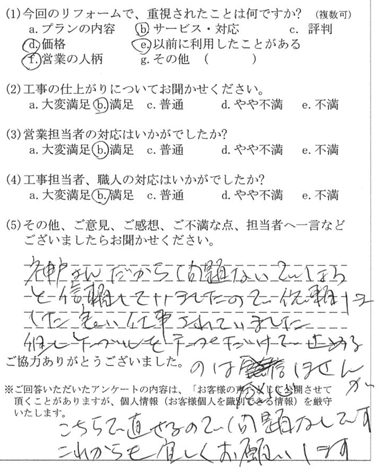 (1)今回のリフォームで、重視されたことは何ですか? (複数可)
a.プランの内容 b.サービス・対応 c. 評判
d.価格 e.以前に利用したことがある
f.営業の人柄 g.その他 ( )
(2)工事の仕上がりについてお聞かせください。
a.大変満足 b.満足 c.普通 d.やや不満 e.不満
(3)営業担当者の対応はいかがでしたか?
a.大変満足 b.満足 c.普通 d.やや不満 e.不満
(4)工事担当者、職人の対応はいかがでしたか?
a.大変満足 b.満足 c.普通 d.やや不満 e.不満
(5)その他、ご意見、ご感想、ご不満な点、担当者へ一言など
ございましたらお聞かせください。
神戸さんだから問題ないでしょう
と信頼していましたので
した 良い仕事されていました
ご協力ありがとうございました。
のは
※ご回答いただいたアンケートの内容は、「お客様の声」として公開させて
頂くことがありますが、個人情報(お客様個人を識別できる情報)を厳守
いたします。
こちらで直せるので問題なしです
これからも宜しくお願いします